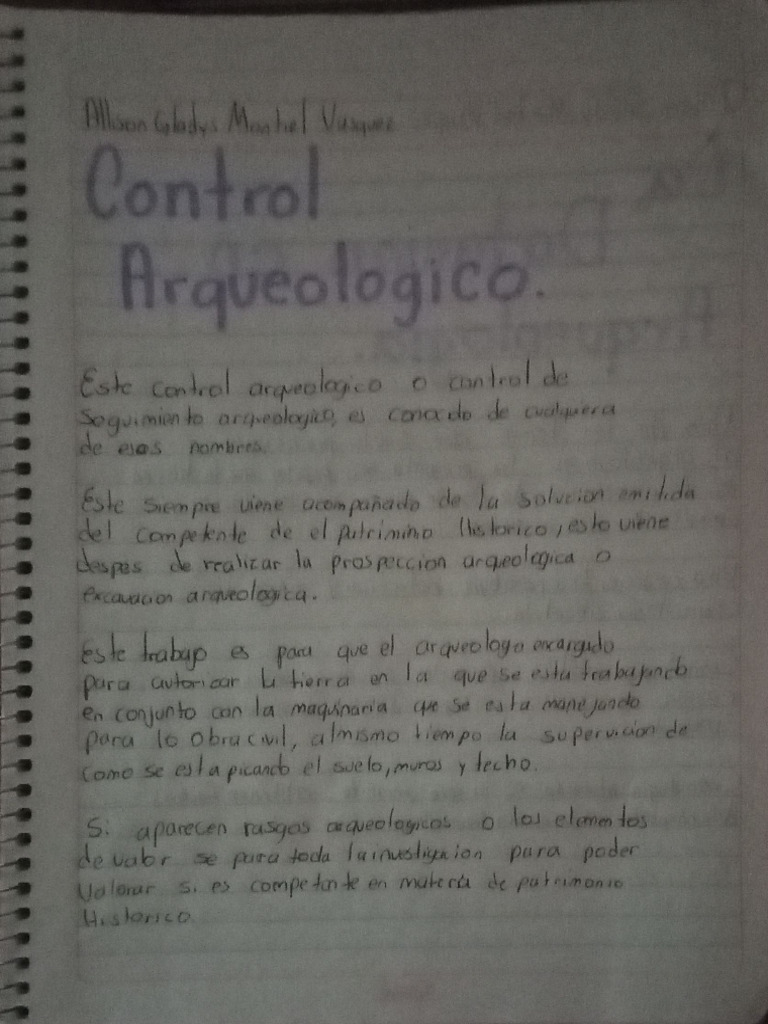 Allison Gladys Montiel Vasquez
Control
Arqueologico.
Este control arqueologico o control de
Seguimiento arqueologico, es conocido de cualquiera
de esos nombres.
Este siempre viene acompañado de la solucion emitida
del competente de el patrimino Historico, esto viene
despes de realizar la prospeccion arqeologica o
excavacion arqueologica.
Este trabajo es para que el arqueologo encargado
para autorizar la tierra en la que se esta trabajando
en conjunto con la maquinaria que se esta manejando
para lo obra civil, al mismo tiempo la supervicion de
como se esta picando el suelo, muros y techo.
Si aparecen rasgos arqueologicos o los elementos
de valor se para toda la investigacion para poder
Valorar si es competente en materia de patrimonio
Historico